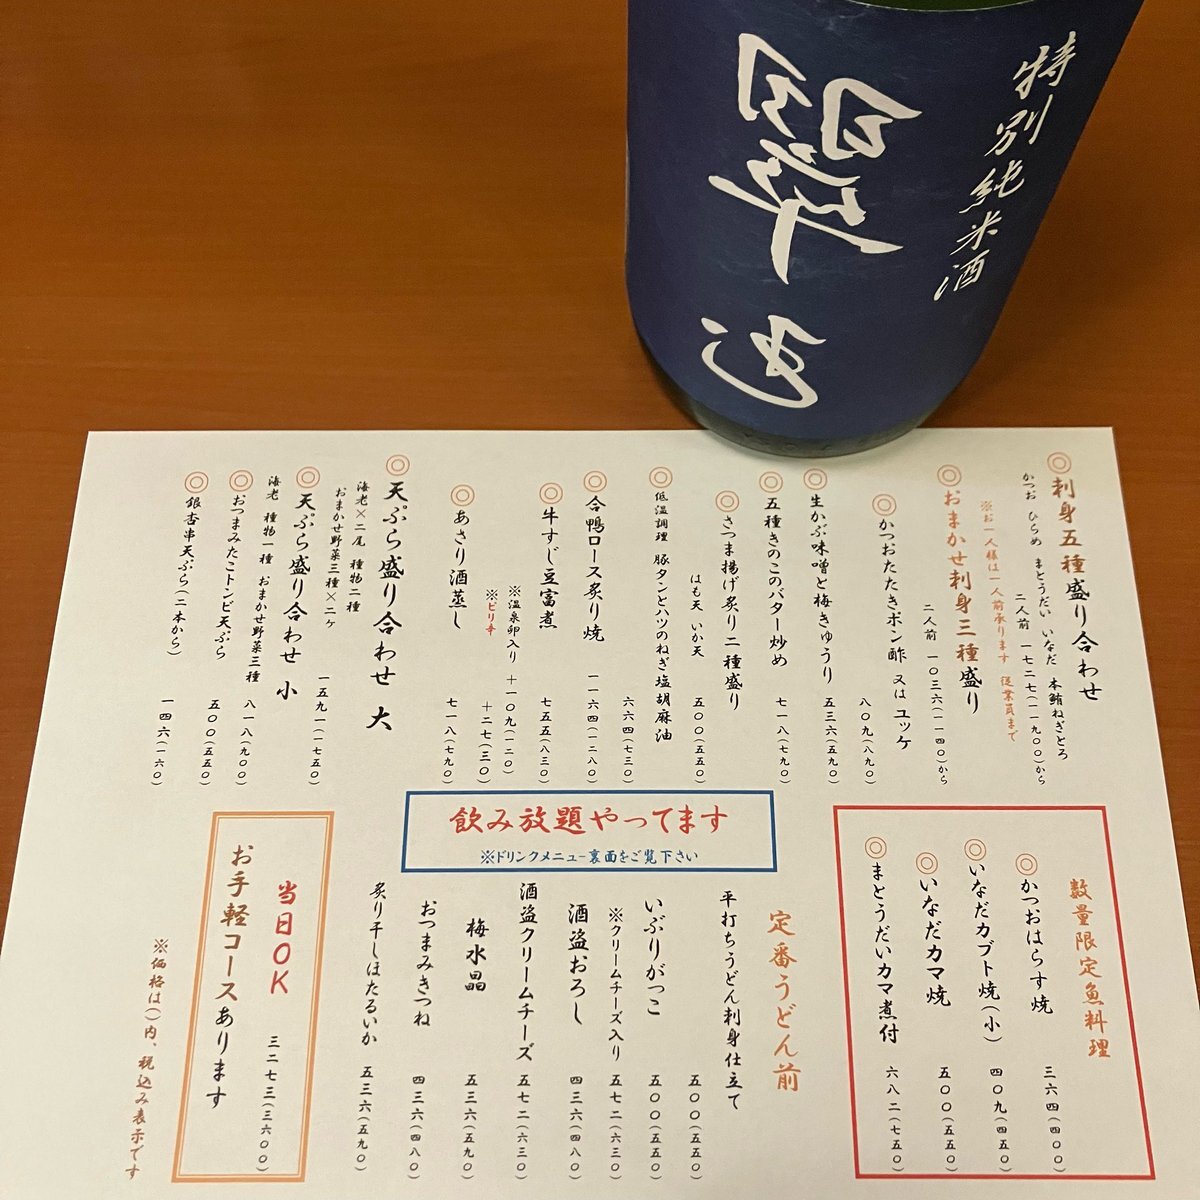 特別純米酒
◎刺身五種盛り合わせ
かつお ひらめ まとうだい いなだ 本鮪ねぎとろ
二人前 一七二七(一九〇〇)から
※お一人様は一人前承ります 従業員まで
◎おまかせ刺身三種盛り
二人前 一〇三六(一一四〇)から
◎かつおたたきポン酢 又は ユッケ
八〇九(八九〇)
◎生かぶ味噌と梅きゅうり
五三六(五九〇)
◎五種きのこのバター炒め
七一八(七九〇)
◎さつま揚げ炙り二種盛り
はも天 いか天 五〇〇(五五〇)
◎低温調理 豚タンとハツのねぎ塩胡麻油
六六四(七三〇)
◎合鴨ロース炙り焼
一一六四(一二八〇)
◎牛すじ豆富煮
七五五(八三〇)
※温泉卵入り +一〇九(一二〇)
※ピリ辛 +二七(三〇)
◎あさり酒蒸し
七一八(七九〇)
◎天ぷら盛り合わせ 大
海老×二尾 種物二種
おまかせ野菜三種×二ヶ
一五九一(一七五〇)
◎天ぷら盛り合わせ 小
海老 種物一種 おまかせ野菜三種
八一八(九〇〇)
◎おつまみたこトンビ天ぷら
五〇〇(五五〇)
◎銀杏串天ぷら(二本から)
一四六(一六〇)
数量限定魚料理
◎かつおはらす焼 三六四(四〇〇)
◎いなだカブト焼(小) 四〇九(四五〇)
◎いなだカマ焼 五〇〇(五五〇)
◎まとうだいカマ煮付 六八二(七五〇)
飲み放題やってます
※ドリンクメニュー裏面をご覧下さい
定番うどん前
平打ちうどん刺身仕立て 五〇〇(五五〇)
いぶりがっこ 五〇〇(五五〇)
※クリームチーズ入り 五七二(六三〇)
酒盗おろし 四三六(四八〇)
酒盗クリームチーズ 五七二(六三〇)
梅水晶 五三六(五九〇)
おつまみきつね 四三六(四八〇)
炙り干しほたるいか 五三六(五九〇)
当日OK 三二七三(三六〇〇)
お手軽コースあります
※価格は()内、税込み表示です